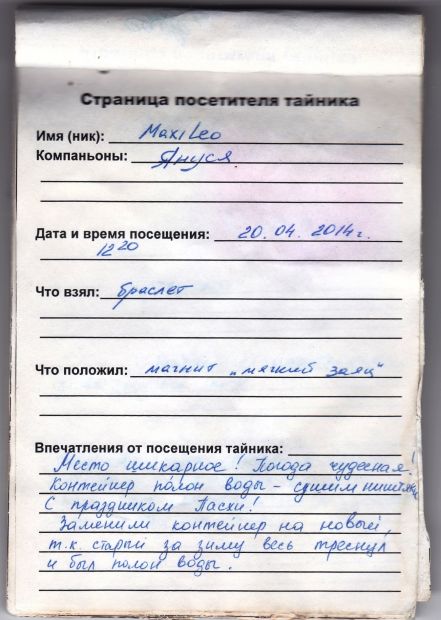 Страница посетителя тайника
Имя (ник): MaxiLeo
Компаньоны: Януся
Дата и время посещения: 20.04.2014г.
12 20
Что взял: браслет
Что положил: магнит „мягкий заяц"
Впечатления от посещения тайника:
Место шикарное! Погода чудесная!
Контейнер полон воды - сушим ништяки
С праздником Пасхи!
Заменили контейнер на новый,
т.к. старый за зиму весь треснул
и был полон воды.